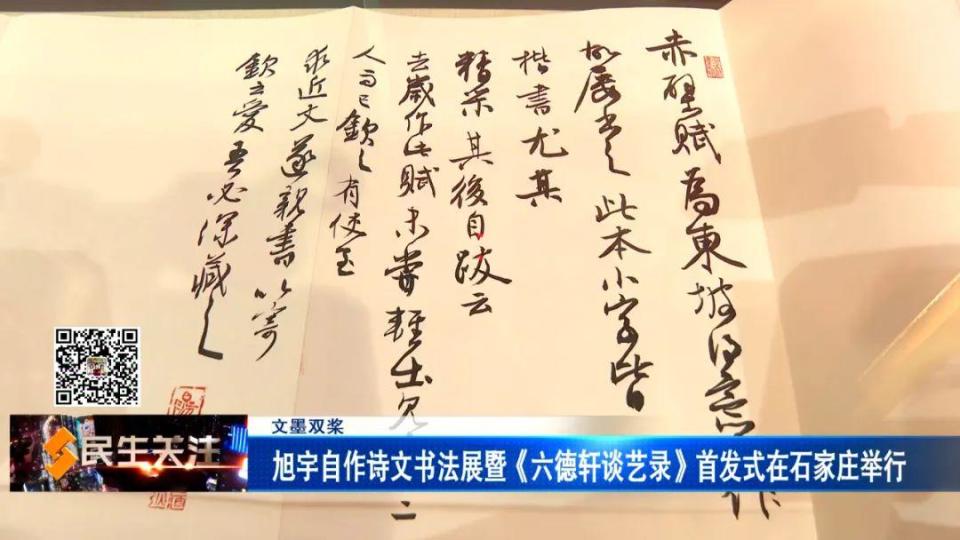 赤壁賦為東坡得意
故屡書之此本小字皆
楷書尤其
精米其後自跋云
去歲作此賦未嘗輕出
人之 欽之有使至
求近文遂親書以寄
欽之愛吾必深藏之
文墨双桨
民生关注
旭宇自作诗文书法展暨《六德轩谈艺录》首发式在石家庄举行